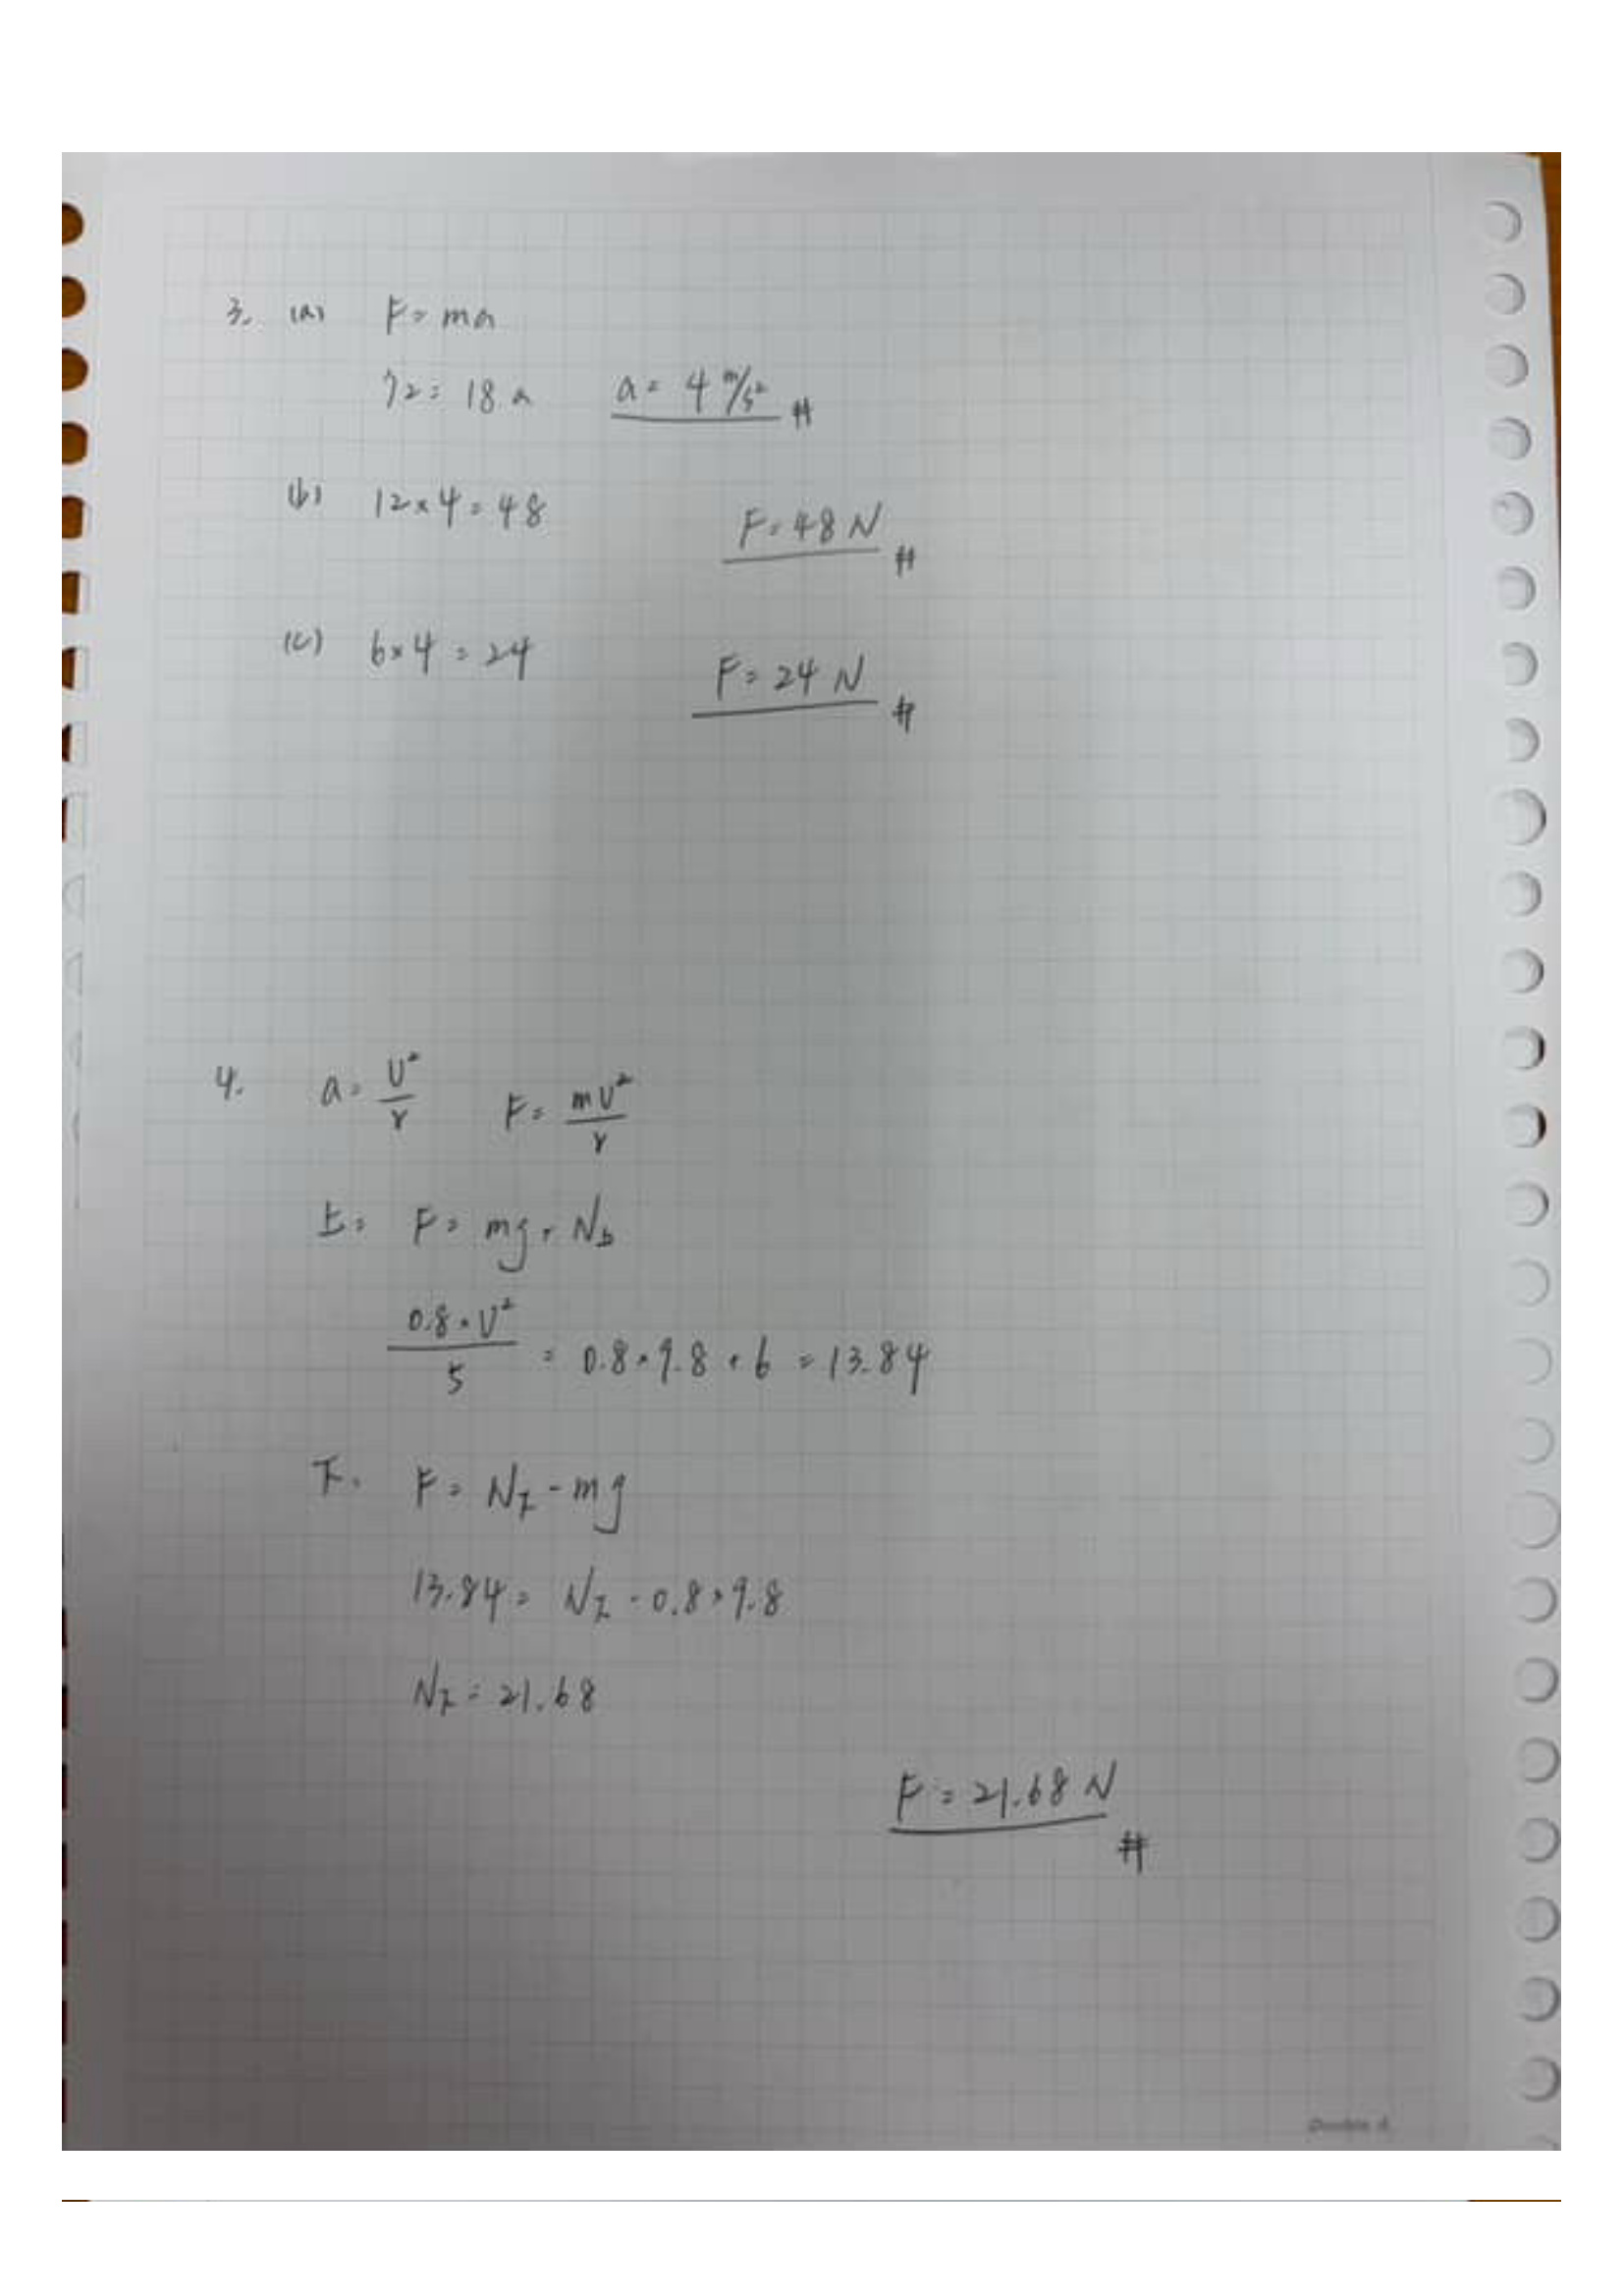 3. (a) F = ma
72 = 18 a a = 4 m/s² #
(b) 12 × 4 = 48 F = 48 N #
(c) 6 × 4 = 24 F = 24 N #
4. a = v²/r F = mv²/r
上: F = mg + N上
0.8 × v²/5 = 0.8 × 9.8 + 6 = 13.84
下: F = N下 - mg
13.84 = N下 - 0.8 × 9.8
N下 = 21.68
F = 21.68 N #
Double A